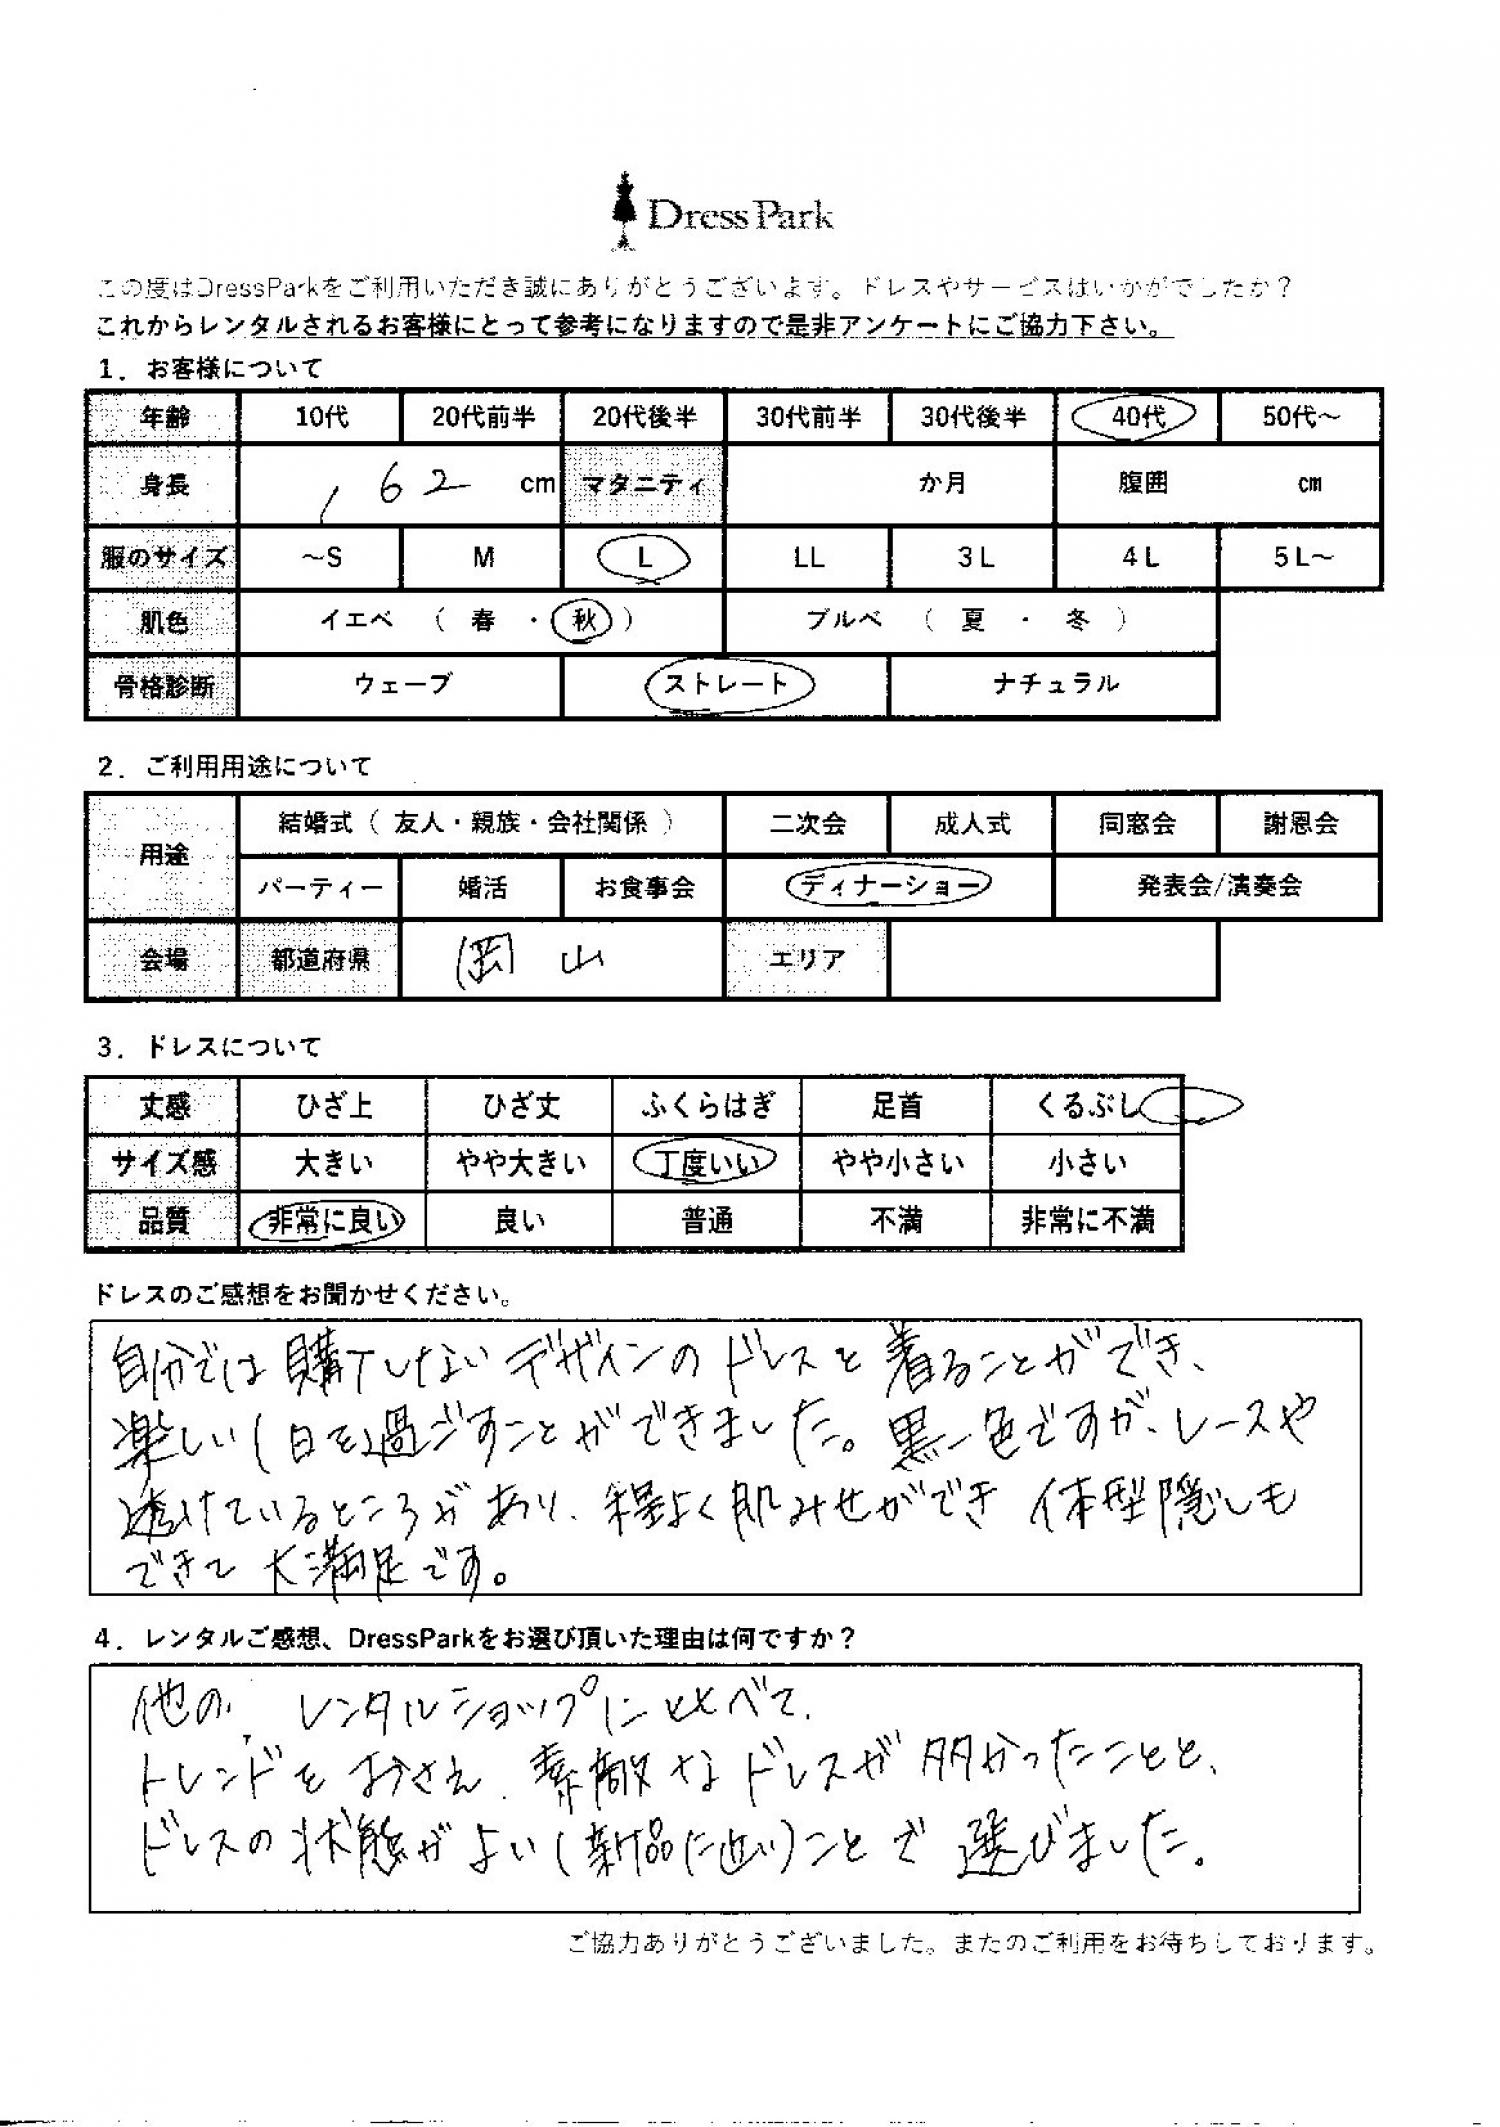 DressPark
この度はDressParkをご利用いただき誠にありがとうございます。ドレスやサービスはいかがでしたか？
これからレンタルされるお客様にとって参考になりますので是非アンケートにご協力下さい。
1．お客様について
年齢 10代 20代前半 20代後半 30代前半 30代後半 40代 50代～
身長 162 cm マタニティ か月 腹囲 cm
服のサイズ ～S M L LL 3L 4L 5L～
肌色 イエベ（ 春 ・ 秋 ） ブルベ（ 夏 ・ 冬 ）
骨格診断 ウェーブ ストレート ナチュラル
2．ご利用用途について
用途 結婚式（ 友人・親族・会社関係 ） 二次会 成人式 同窓会 謝恩会
パーティー 婚活 お食事会 ディナーショー 発表会/演奏会
会場 都道府県 岡山 エリア
3．ドレスについて
丈感 ひざ上 ひざ丈 ふくらはぎ 足首 くるぶし
サイズ感 大きい やや大きい 丁度いい やや小さい 小さい
品質 非常に良い 良い 普通 不満 非常に不満
ドレスのご感想をお聞かせください。
自分では購入しないデザインのドレスを着ることができ、
楽しい1日を過ごすことができました。黒一色ですが、レースや
透けているところがあり、程よく肌みせができ 体型隠しも
できて 大満足です。
4．レンタルご感想、DressParkをお選び頂いた理由は何ですか？
他の レンタルショップに比べて、
トレンドをおさえ、素敵なドレスが多かったことと、
ドレスの状態がよい(新品に近い)ことで 選びました。
ご協力ありがとうございました。またのご利用をお待ちしております。